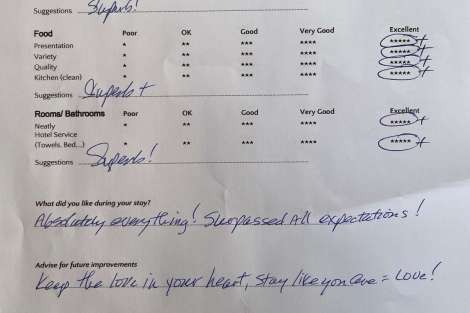 Suggestions Superb!
Food Poor OK Good Very Good Excellent
Presentation * ** *** **** ***** +
Variety * ** *** **** ***** +
Quality * ** *** **** ***** +
Kitchen (clean) * ** *** **** ***** +
Suggestions Superb +
Rooms/ Bathrooms Poor OK Good Very Good Excellent
Neatly * ** *** **** ***** +
Hotel Service
(Towels, Bed...) * ** *** **** ***** +
Suggestions Superb!
What did you like during your stay?
Absolutely everything! Surpassed All expectations!
Advise for future improvements
Keep the love in your heart, stay like you are = Love!